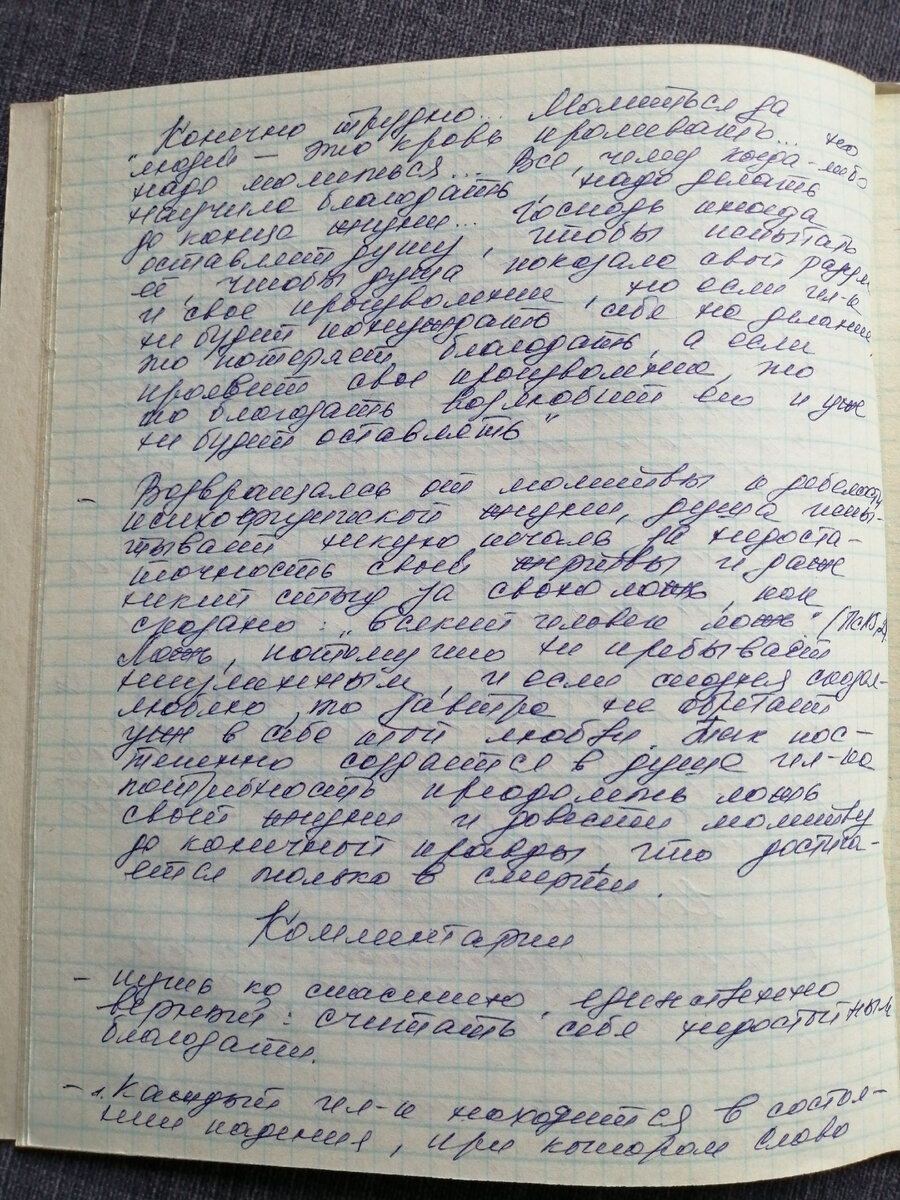 "Конечно трудно... Молиться за
людей – это кровь проливать... но
надо молиться... Все, чему когда-либо
научила благодать, надо делать
до конца жизни... Господь иногда
оставляет душу, чтобы испытать
её, чтобы душа показала свой разум
и свое произволение, но если чел-к
не будет понуждать себя на делание,
то потеряет благодать, а если
проявит свое произволение, то
то благодать возлюбит его и уже
не будет оставлять"
- Возвращаясь от молитвы к дебелости
психофизической жизни, душа испы-
тывает некую печаль за недоста-
точность своей жертвы и даже
некий стыд за свою ложь, как
сказано: "всякий человек ложь" (Пс
Ложь, потому что не пребывает
неизменным, и если сегодня
люблю, то завтра не обретает
уже в себе этой любви. Так пос-
тепенно создается в душе чел-ка
потребность преодолеть ложь
своей жизни и довести молитву
до конечной правды, что достига-
ется только в смерти.
Комментарии
- путь ко спасению, единственно
верный: считать себя недостойным
благодати.
- 1. Каждый чел-к находится в состоя-
нии падения, при котором слово